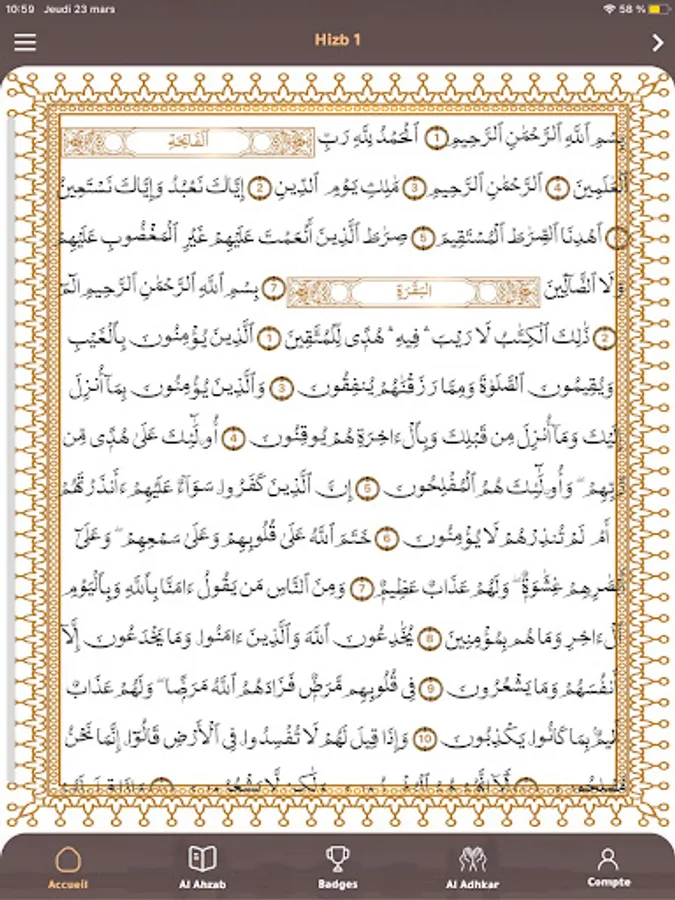 10:59 Jeudi 23 mars 58 %
Hizb 1
بِسْمِ ٱللَّهِ ٱلرَّحْمَٰنِ ٱلرَّحِيمِ 1 ٱلْحَمْدُ لِلَّهِ رَبِّ ٱلْفَاتِحَة
ٱلْعَٰلَمِينَ 4 ٱلرَّحْمَٰنِ ٱلرَّحِيمِ 3 مَٰلِكِ يَوْمِ ٱلدِّينِ 2 إِيَّاكَ نَعْبُدُ وَإِيَّاكَ نَسْتَعِينُ
ٱهْدِنَا ٱلصِّرَٰطَ ٱلْمُسْتَقِيمَ 5 صِرَٰطَ ٱلَّذِينَ أَنْعَمْتَ عَلَيْهِمْ غَيْرِ ٱلْمَغْضُوبِ عَلَيْهِمْ
وَلَا ٱلضَّآلِّينَ البَقَرَة 7 بِسْمِ ٱللَّهِ ٱلرَّحْمَٰنِ ٱلرَّحِيمِ الٓمٓ
2 ذَٰلِكَ ٱلْكِتَٰبُ لَا رَيْبَ ۛ فِيهِ ۛ هُدًى لِّلْمُتَّقِينَ 1 ٱلَّذِينَ يُؤْمِنُونَ بِٱلْغَيْبِ
وَيُقِيمُونَ ٱلصَّلَوٰةَ وَمِمَّا رَزَقْنَٰهُمْ يُنفِقُونَ 3 وَٱلَّذِينَ يُؤْمِنُونَ بِمَآ أُنزِلَ
إِلَيْكَ وَمَآ أُنزِلَ مِن قَبْلِكَ وَبِٱلْءَاخِرَةِ هُمْ يُوقِنُونَ 4 أُو۟لَٰٓئِكَ عَلَىٰ هُدًى مِّن
رَّبِّهِمْ ۖ وَأُو۟لَٰٓئِكَ هُمُ ٱلْمُفْلِحُونَ 5 إِنَّ ٱلَّذِينَ كَفَرُوا۟ سَوَآءٌ عَلَيْهِمْ ءَأَنذَرْتَهُمْ
أَمْ لَمْ تُنذِرْهُمْ لَا يُؤْمِنُونَ 6 خَتَمَ ٱللَّهُ عَلَىٰ قُلُوبِهِمْ وَعَلَىٰ سَمْعِهِمْ ۖ وَعَلَىٰٓ
أَبْصَٰرِهِمْ غِشَٰوَةٌ ۖ وَلَهُمْ عَذَابٌ عَظِيمٌ 7 وَمِنَ ٱلنَّاسِ مَن يَقُولُ ءَامَنَّا بِٱللَّهِ وَبِٱلْيَوْمِ
ٱلْءَاخِرِ وَمَا هُم بِمُؤْمِنِينَ 8 يُخَٰدِعُونَ ٱللَّهَ وَٱلَّذِينَ ءَامَنُوا۟ وَمَا يَخْدَعُونَ إِلَّآ
أَنفُسَهُمْ وَمَا يَشْعُرُونَ 9 فِى قُلُوبِهِم مَّرَضٌ فَزَادَهُمُ ٱللَّهُ مَرَضًا ۖ وَلَهُمْ عَذَابٌ
أَلِيمٌۢ بِمَا كَانُوا۟ يَكْذِبُونَ 10 وَإِذَا قِيلَ لَهُمْ لَا تُفْسِدُوا۟ فِى ٱلْأَرْضِ قَالُوٓا۟ إِنَّمَا نَحْنُ
Accueil
Al Ahzab
Badges
Al Adhkar
Compte